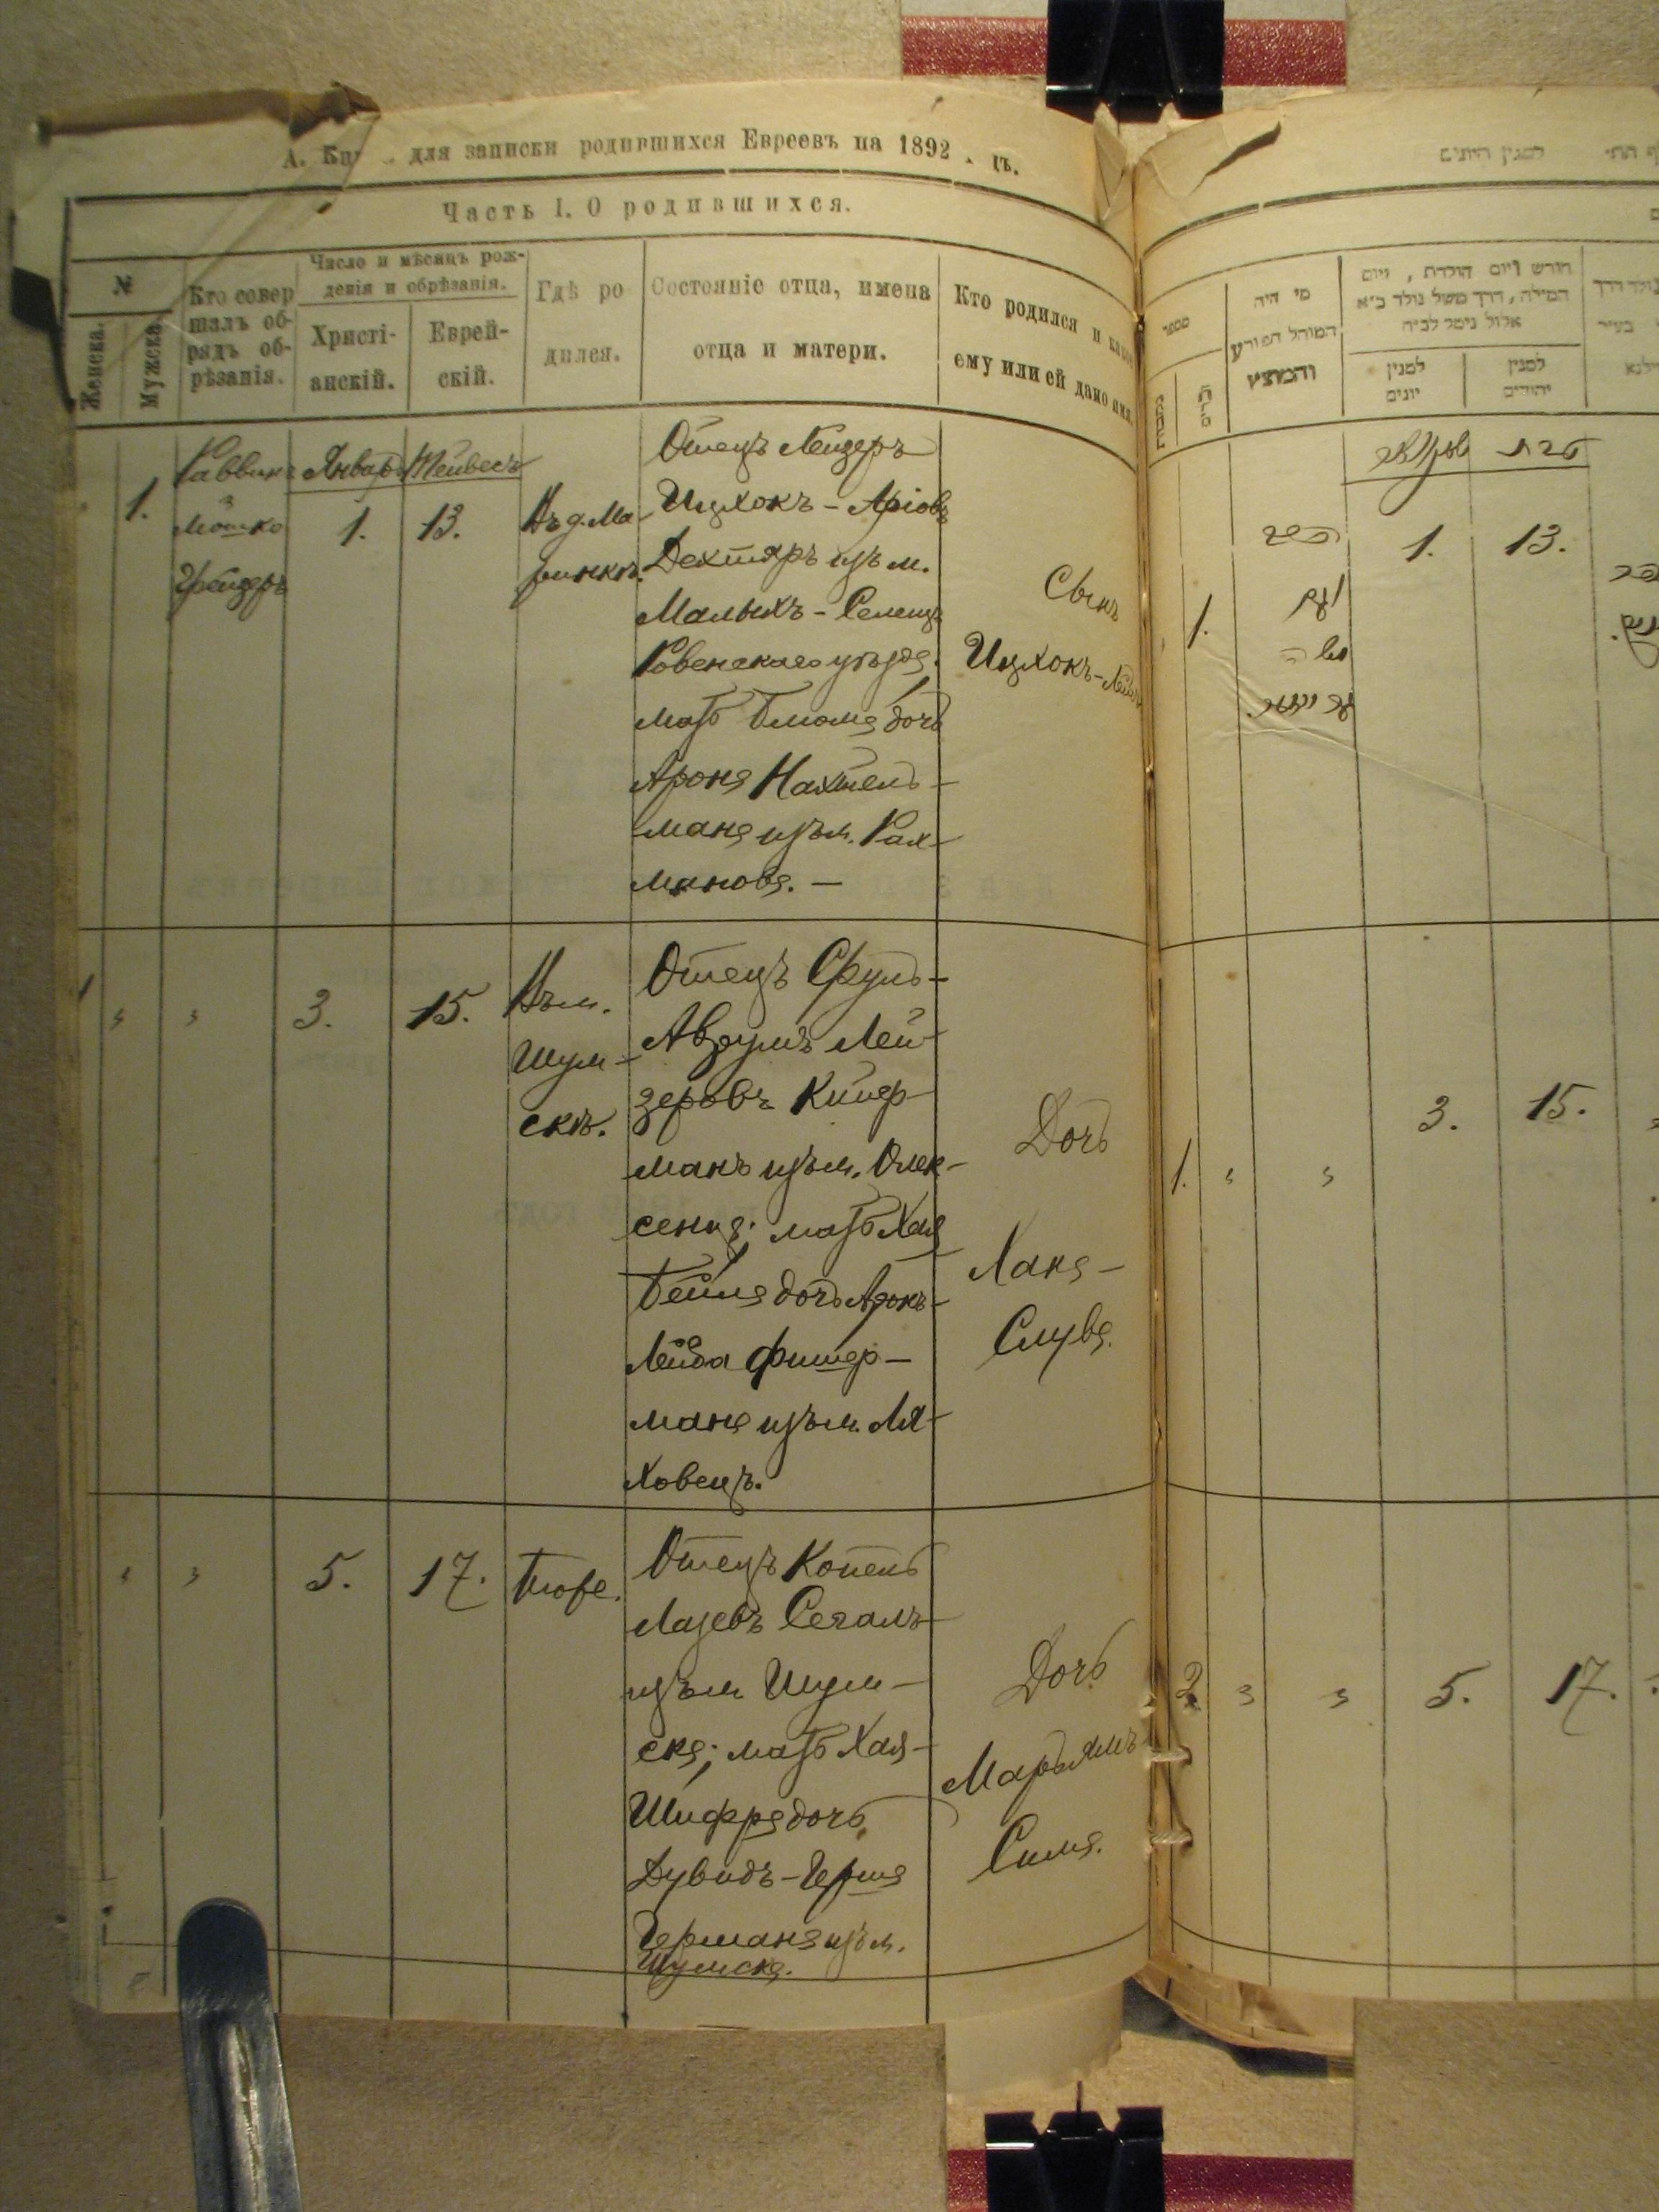 для записки родившихся Евреевъ на 1892
Часть I. О родившихся.
№
Женска.
Мужска.
Кто совер
шалъ об-
рядъ об-
рѣзанія.
Число и мѣсяцъ рож-
денія и обрѣзанія.
Христі-
анскій.
Еврей-
скій.
Гдѣ ро
дился.
Состояніе отца, имена
отца и матери.
Кто родился и како
ему или ей дано имя.
1.
Раввинъ
Мошко
Январь
1.
13.
Въ д. Ма-
Отецъ Лейзеръ
Ицхокъ-Аріовъ
Дехтяръ изъ м.
Малыхъ-Селищъ
Ровенскаго уѣзда,
мать Блюма дочь
Арона Нахтель-
мана изъ м. Рах-
манова. —
Сынъ
Ицхокъ-
3.
15.
Въ м.
Шум-
скѣ.
Отецъ Сруль-
Аврумъ Лей-
зеровъ
манъ изъ м. Олек-
сенца; мать Хая
Бейла дочь Аронъ-
Лейба Фишер-
мана изъ м. Ля-
ховецъ.
Дочь
Хана-
Слува.
5.
17.
Тоже.
Отецъ Копель
Лазевъ Сегалъ
изъ м Шум-
ска; мать Хая-
Шифра дочь
Дувидъ-Герша
Германа изъ м.
Шумска.
Дочь
Марьямъ
Сима.
למנין היונים
מספר
מי היה
המוהל הפורע
והמוצץ
חודש ויום הולדת, ויום
המילה, דרך משל נולד כ״א
אלול נימל לכ״ה
למנין
יונים
למנין
יהודים
טבת
1.
1.
13.
משה
1.
3.
15.
2.
5.
17.